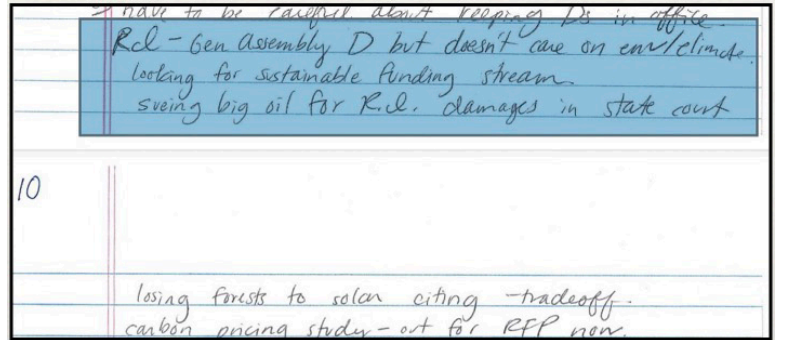 → have to be careful about keeping Ds in office.
R.I - Gen Assembly D but doesn't care on env/climate.
looking for sustainable funding stream.
sueing big oil for R.I. damages in state court
10
losing forests to solar citing - tradeoff.
carbon pricing study - out for RFP now.